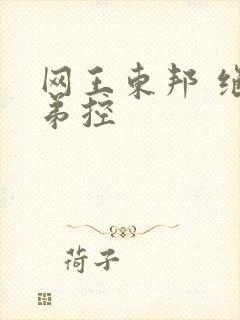 网王東邦
弟控
荷子